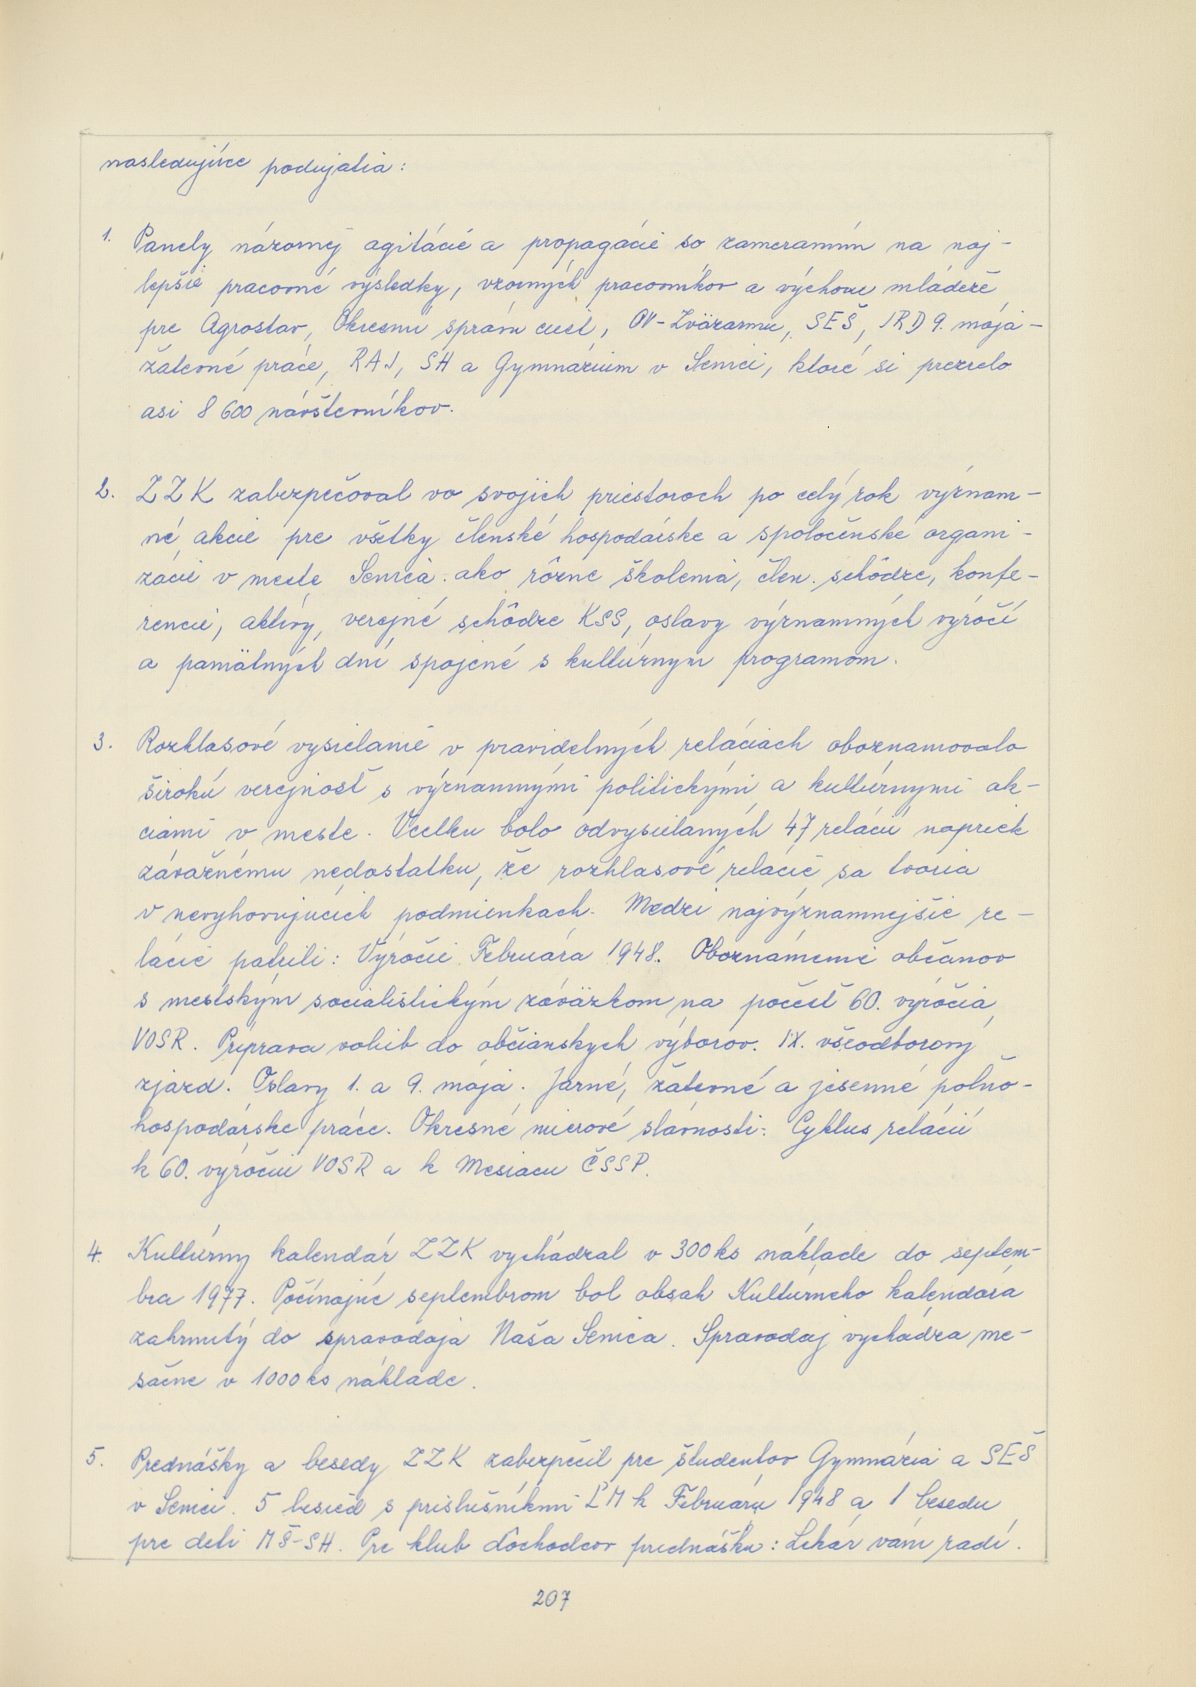 nasledujúce podujatia:
1. Panely názornej agitácie a propagácie so zameraním na naj-
lepšie pracovné výsledky, vzorných pracovníkov a výchovu mládeže
pre Agrostav, Okresnú správu ciest, OV-Zväzarmu, SEŠ, JRD 9. mája-
žatevné práce, RAJ, SH a Gymnázium v Senici, ktoré si prezrelo
asi 8 600 návštevníkov.
2. ZZK zabezpečoval vo svojich priestoroch po celý rok význam-
né akcie pre všetky členské hospodárske a spoločenské organi-
zácie v meste Senica. ako rôzne školenia, člen. schôdze, konfe-
rencie, aktívy, verejné schôdze KSS, oslavy významných výročí
a pamätných dní spojené s kultúrnym programom.
3. Rozhlasové vysielanie v pravidelných reláciach oboznamovalo
širokú verejnosť s významnými politickými a kultúrnymi ak-
ciami v meste. Vcelku bolo odvysielaných 47 relácií napriek
závažnému nedostatku, že rozhlasové relácie sa tvoria
v nevyhovujucich podmienkach. Medzi najvýznamnejšie re-
lácie patrili: Výročie Februára 1948. Oboznámenie občanov
s mestským socialistickým záväzkom na počesť 60. výročia
VOSR. Príprava volieb do občianskych výborov. IX. všeodborový
zjazd. Oslavy 1. a 9. mája. Jarné, žatevné a jesenné poľno-
hospodárske práce. Okresné mierové slávnosti. Cyklus relácií
k 60. výročiu VOSR a k Mesiacu ČSSP.
4. Kultúrny kalendár ZZK vychádzal v 300 ks náklade do septem-
bra 1977. Počínajúc septembrom bol obsah Kultúrneho kalendára
zahrnutý do spravodaja Naša Senica. Spravodaj vychádza me-
sačne v 1000 ks náklade.
5. Prednášky a besedy ZZK zabezpečil pre študentov Gymnázia a SEŠ
v Senici. 5 besied s príslušníkmi ĽM k Februáru 1948 a 1 besedu
pre deti MŠ-SH. Pre klub dôchodcov prednášku: Lekár vám radí.
207